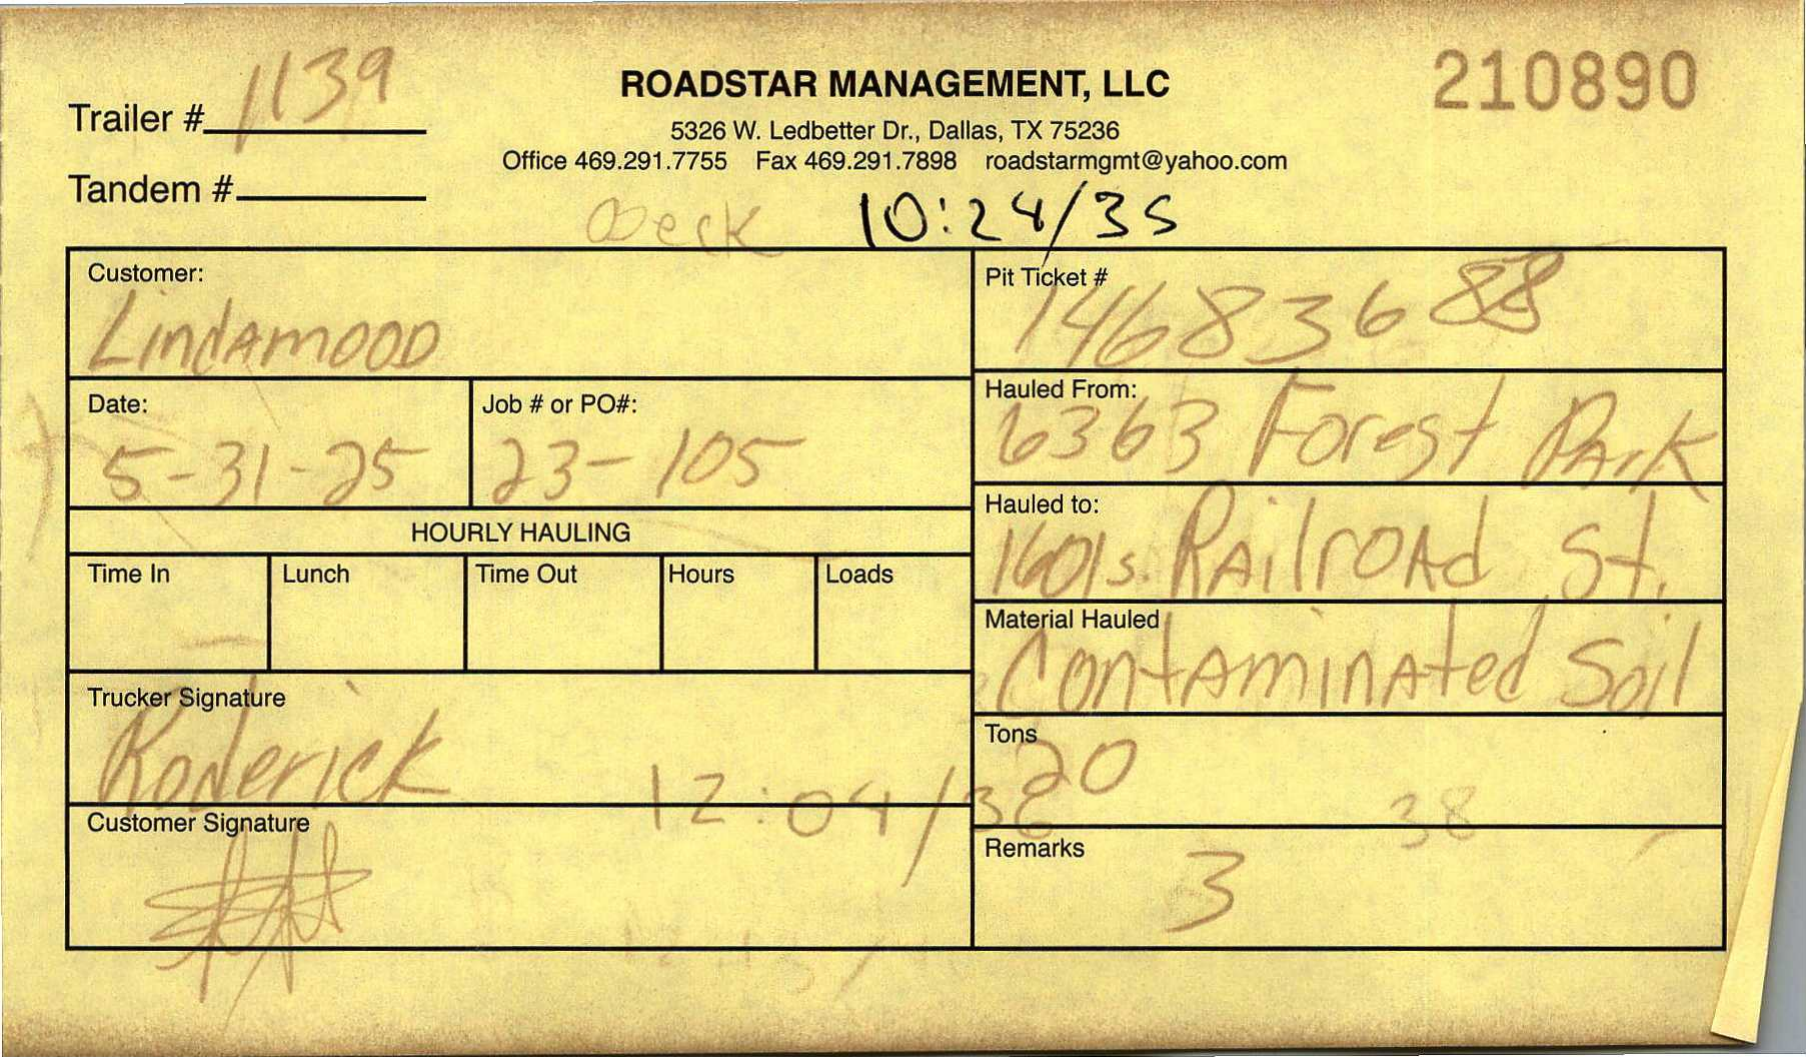 Trailer # 1139
ROADSTAR MANAGEMENT, LLC
210890
5326 W. Ledbetter Dr., Dallas, TX 75236
Office 469.291.7755 Fax 469.291.7898 roadstarmgmt@yahoo.com
Tandem #
10:24/35
Customer:
Lindamood
Pit Ticket #
14683688
Date:
5-31-25
Job # or PO#:
23-105
Hauled From:
6363 Forest Park
Hauled to:
1601 s. Railroad St.
HOURLY HAULING
Time In Lunch Time Out Hours Loads
Material Hauled
Contaminated Soil
Trucker Signature
Roderick
Tons
20
12:04/36
38
Customer Signature
Remarks
3